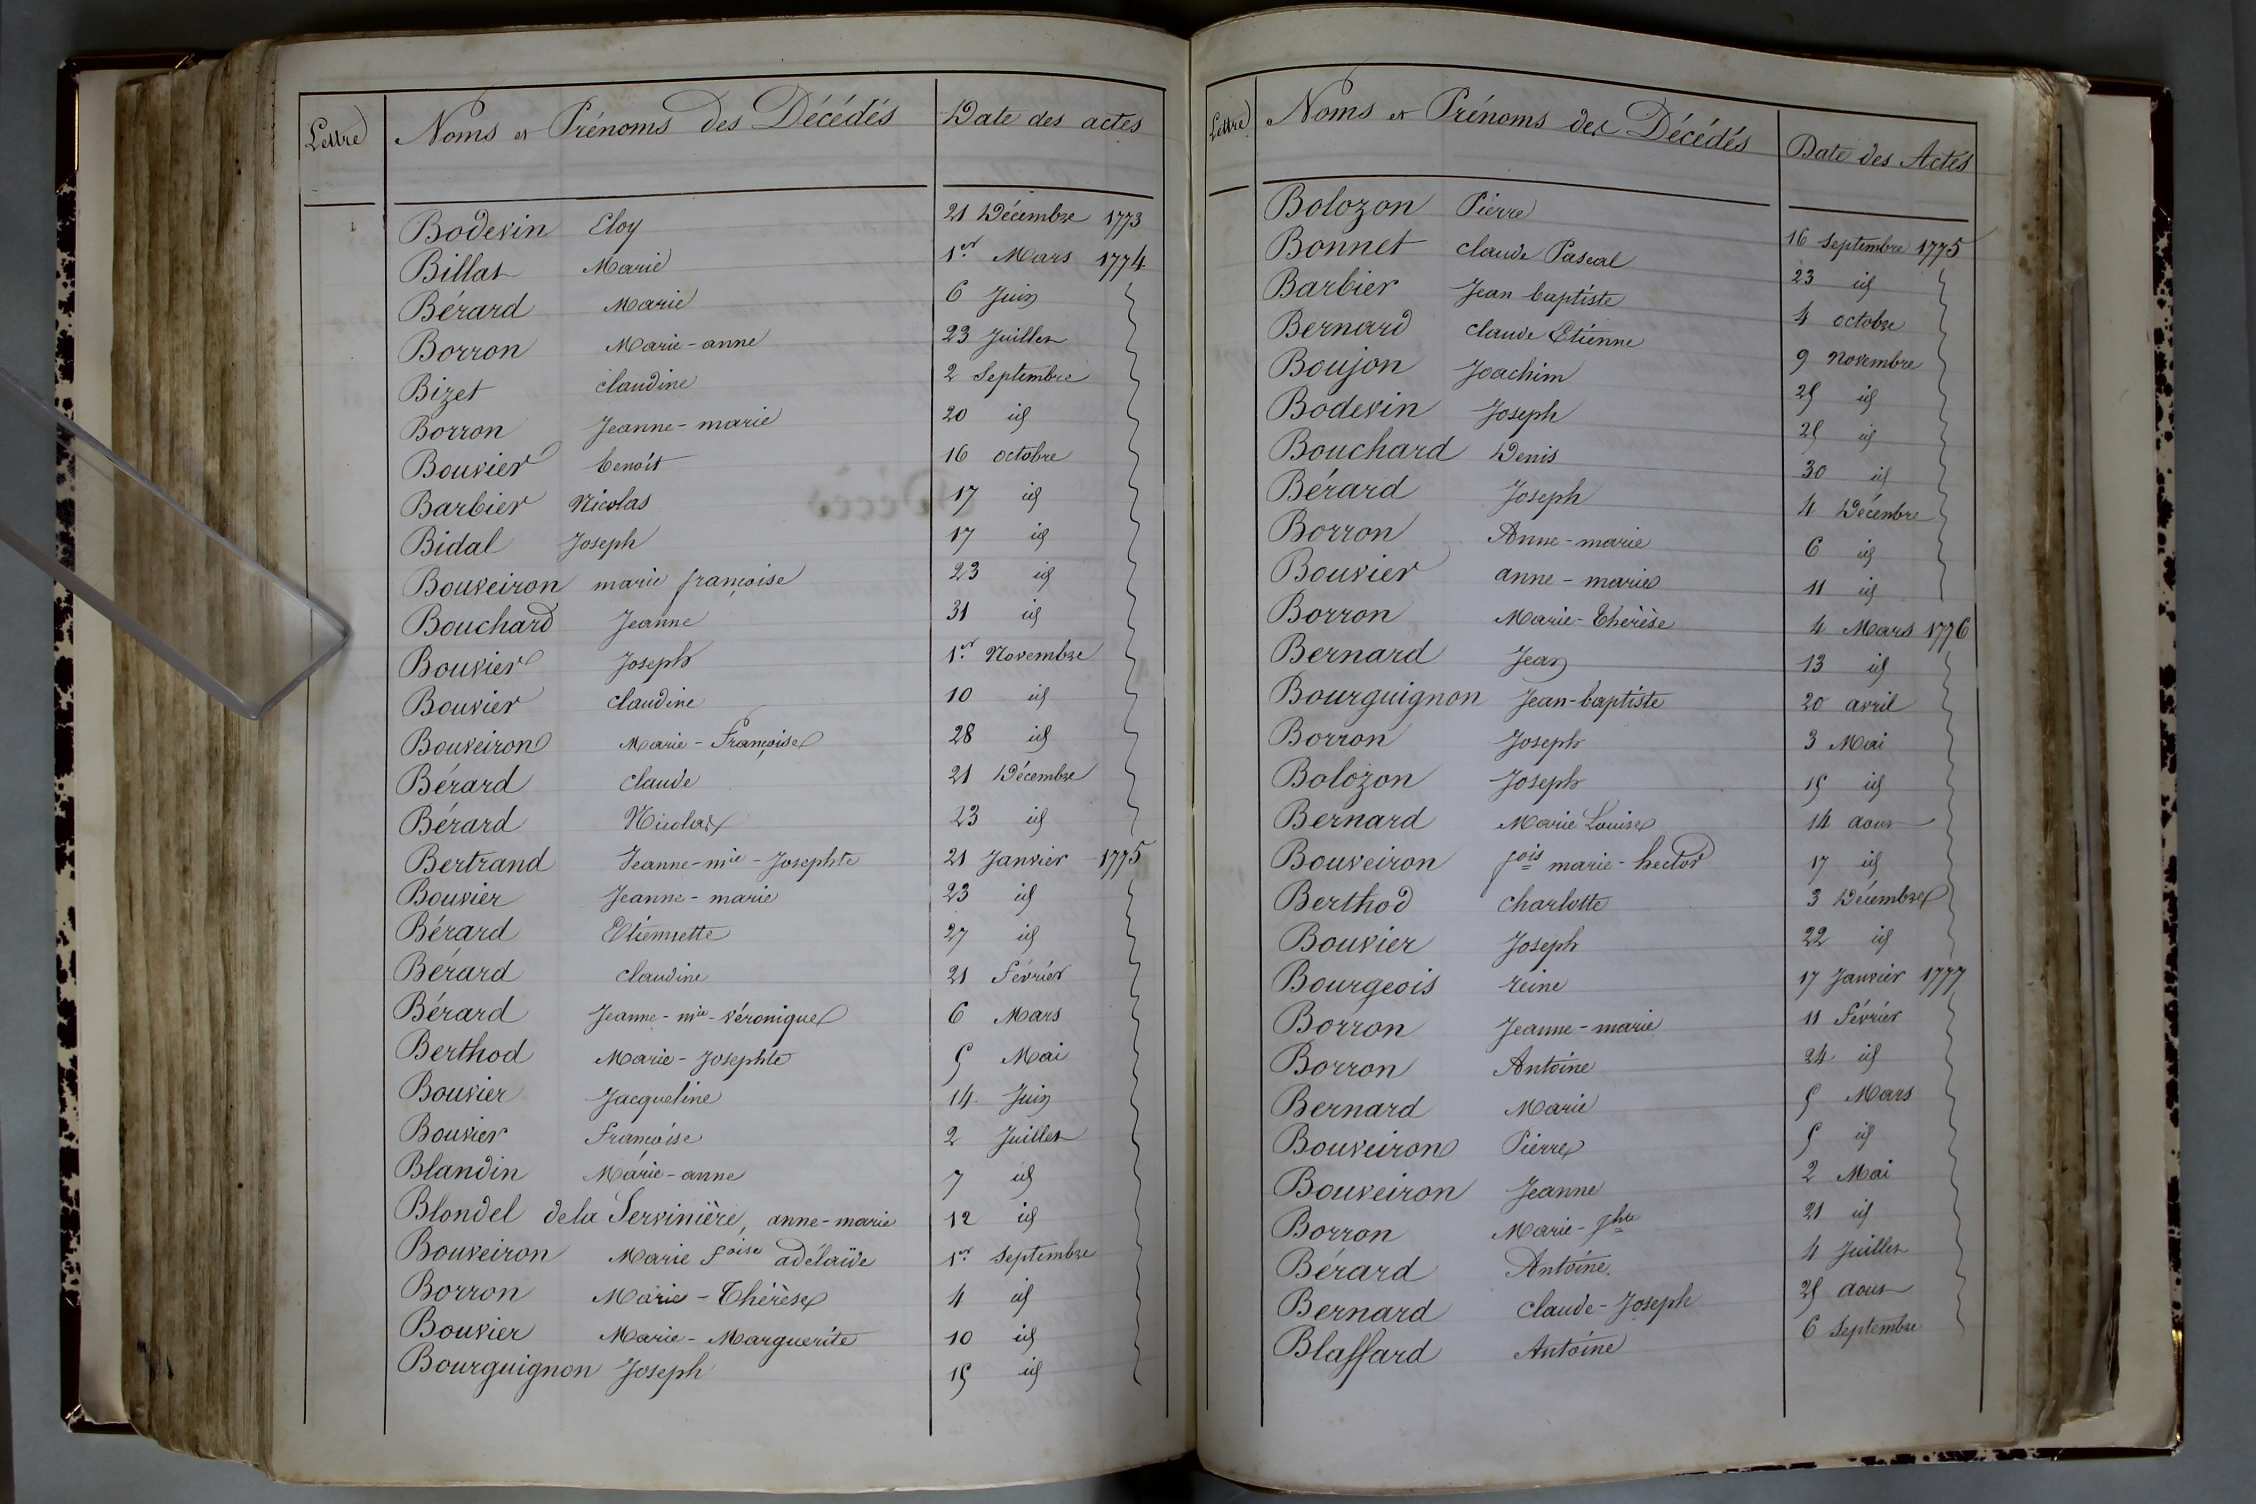 Lettre Noms et Prénoms des Décédés Date des actes
Bodevin Eloy 21 Décembre 1773
Billat Marie 1er Mars 1774
Bérard Marie 6 Juin
Borron Marie-anne 23 Juillet
Bizet claudine 2 Septembre
Borron Jeanne-marie 20 id
Bouvier benoit 16 octobre
Barbier Nicolas 17 id
Bidal Joseph 17 id
Bouveiron marie françoise 23 id
Bouchard Jeanne 31 id
Bouvier Joseph 1er Novembre
Bouvier claudine 10 id
Bouveiron Marie-Françoise 28 id
Bérard claude 21 Décembre
Bérard Nicolas 23 id
Bertrand Jeanne-mie-Josephte 21 Janvier 1775
Bouvier Jeanne-marie 23 id
Bérard Etiennette 27 id
Bérard claudine 21 Février
Bérard Jeanne-mie-véronique 6 Mars
Berthod Marie-Josephte 5 Mai
Bouvier Jacqueline 14 Juin
Bouvier Françoise 2 Juillet
Blandin Marie-anne 7 id
Blondel de la Servinière, anne-marie 12 id
Bouveiron Marie foise adélaïde 1er Septembre
Borron Marie-Thérèse 4 id
Bouvier Marie-Marguerite 10 id
Bourguignon Joseph 15 id
Lettre Noms et Prénoms des Décédés Date des Actes
Bolozon Pierre 16 Septembre 1775
Bonnet claude Pascal 23 id
Barbier Jean baptiste 4 octobre
Bernard claude Etienne 9 Novembre
Boujon Joachim 25 id
Bodevin Joseph 25 id
Bouchard Denis 30 id
Bérard Joseph 4 Décembre
Borron Anne-marie 6 id
Bouvier anne-marie 11 id
Borron Marie-Thérèse 4 Mars 1776
Bernard Jean 13 id
Bourguignon Jean-baptiste 20 avril
Borron Joseph 3 Mai
Bolozon Joseph 15 id
Bernard Marie Louise 14 aout
Bouveiron fois marie-hector 17 id
Berthod charlotte 3 Décembre
Bouvier Joseph 22 id
Bourgeois reine 17 Janvier 1777
Borron Jeanne-marie 11 Février
Borron Antoine 24 id
Bernard Marie 5 Mars
Bouveiron Pierre 5 id
Bouveiron Jeanne 2 Mai
Borron Marie-Jhte 21 id
Bérard Antoine. 4 Juillet
Bernard claude-Joseph 25 aout
Blaffard Antoine 6 Septembre